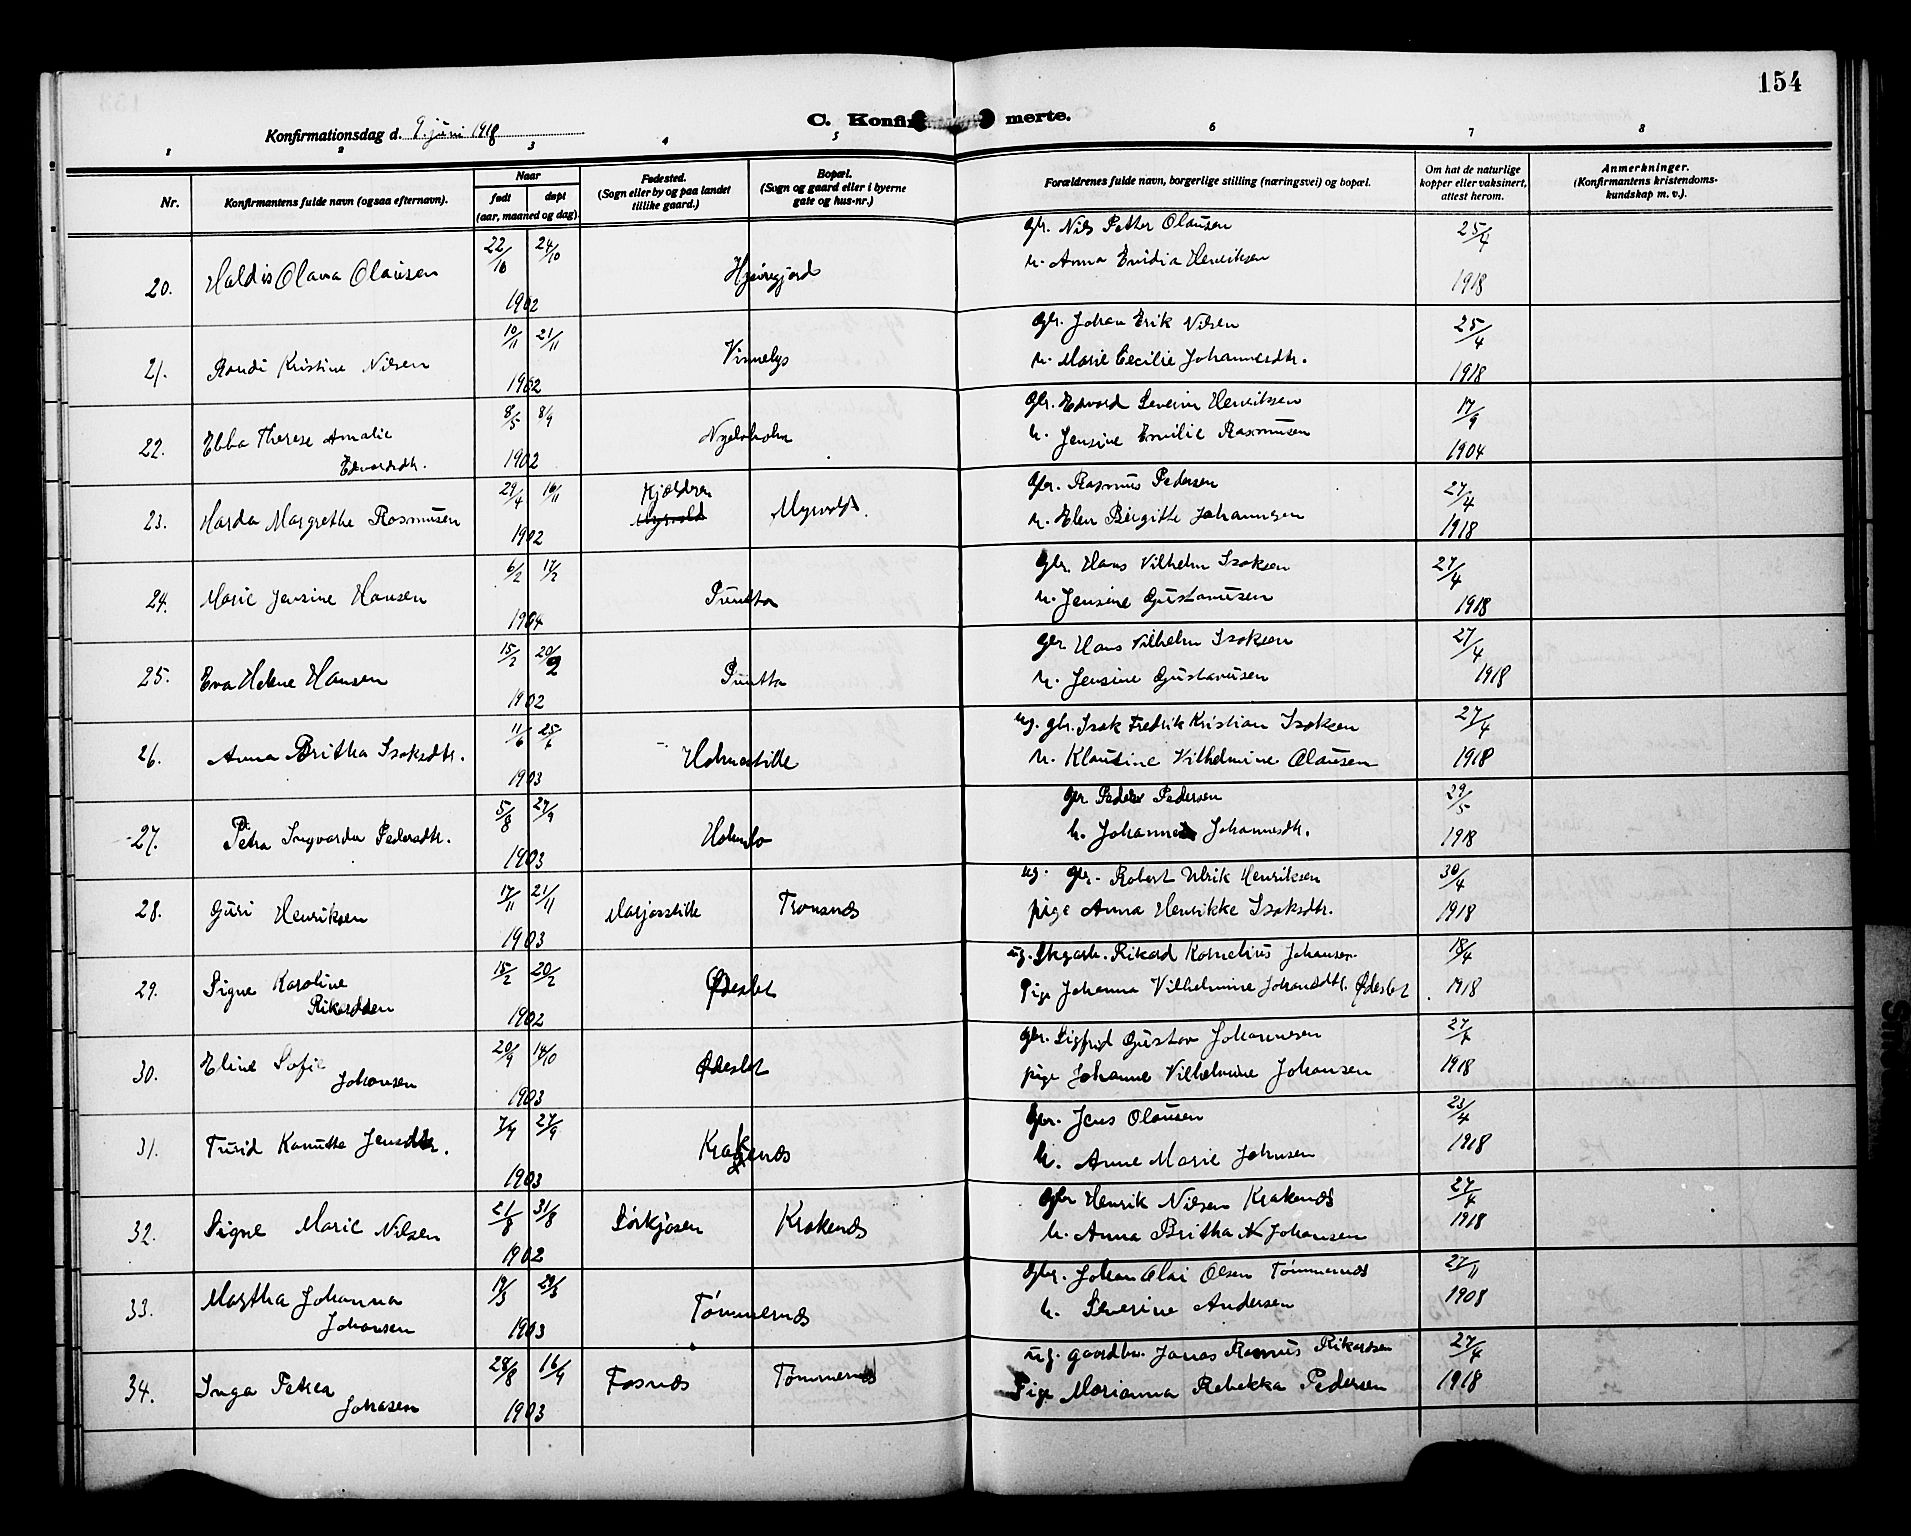 154
C. Konfirmerte.
Konfirmationsdag d. 9. juni 1918
1 2 3 4 5 6 7 8
Nr.
Konfirmantens fulde navn (ogsaa efternavn).
Naar
født døpt
(aar, maaned og dag)
Fødested.
(Sogn eller by og paa landet
tillike gaard.)
Bopæl.
(Sogn og gaard eller i byerne
gate og hus-nr.)
Forældrenes fulde navn, borgerlige stilling (næringsvei) og bopæl.
Om hat de naturlige
kopper eller vaksinert,
attest herom.
Anmerkninger.
(Konfirmantens kristendoms-
kundskap m. v.).
22/10 24/10 gbr. Nils Petter Olausen 25/4
20. Haldis Olava Olausen h. Anna Henriksen
1902 1918
10/11 21/11 Gbr. Johan Erik Nilsen 25/4
21. Randi Kristine Nilsen h. Marie Cecilie Johannesdtr.
1902 1918
8/5 8/9 Gbr. Edvard Severin Henriksen 17/9
22. Ebba Therese Amalie h. Jensine Emilie Rasmusen
Edvardsdtr. 1902 1904
29/4 16/11 Kjeldren Gbr. Rasmus Pedersen 27/4
23. Harda Margrethe Rasmusen Myrvold Myrvold. h. Elen Birgitte Johannsen
1902 1918
6/2 17/2 Gbr. Hans Vilhelm Isaksen 27/4
24. Marie Jensine Hansen Puntta h. Jensine Gustavusen
1904 1918
15/2 20/2 Gbr Hans Vilhelm Isaksen 27/4
25. Eva Helene Hansen Puntta h. Jensine Gustavusen
1902 1918
11/6 25/6 ug. gbr. Isak Fredrik Kristian Isaksen 27/4
26. Anna Britha Isaksdtr. h. Klausine Vilhelmine Olausen
1903 1918
5/8 27/9 Gbr Peder Pedersen 29/5
27. Petra Ingvarda Pedersdtr. h. Johanne Johannesdtr.
1903 1918
17/11 21/11 ug. gbr. Robert Ulrik Henriksen 30/4
28. Guri Henriksen Tronsnæs pige Anna Henrikke Isaksdtr.
1903 1918
15/2 20/2 ug. Rikard Kornelius Johansen 18/4
29. Signe Karoline Ødeslet Pige Johanna Vilhelmine Johansdtr. Ødeslet 1918
Rikardsen 1902
20/9 14/10 gbr. Sigfrid Gustav Johannesen
30. Eline Sofie Ødeslet pige Johanne Vilhelmine Johansen 1918
Johansen 1903
7/9 27/9 Gbr. Jens Olausen 23/4
31. Turid Kanutta Jensdtr. Krakenæs h. Anne Marie Johnsen 1918
1903
21/8 31/8 Gbr Henrik Nilsen Krakenæs 27/4
32. Signe Marie Nilsen Sørkjosen Krakenæs h. Anna Britha N Johansen 1918
1902
Gbr. Johan Olai Olsen Tømmernæs 27/11
33. Martha Johanna Tømmernæs h. Severine Andersen 1908
Johansen 1903
28/8 16/9 ug. gaardbr. Jonas Rasmus Rikardsen 27/4
34. Inga Petrea Fosnæs Tømmernæs Pige Marianna Rebekka Pedersen 1918
Johasen 1903